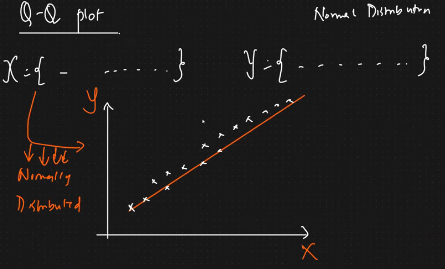 Q-Q plot
Normal Distribution
X = { - ...... }
Y = { - - - - - - - }
Y
Normally
Distributed
X